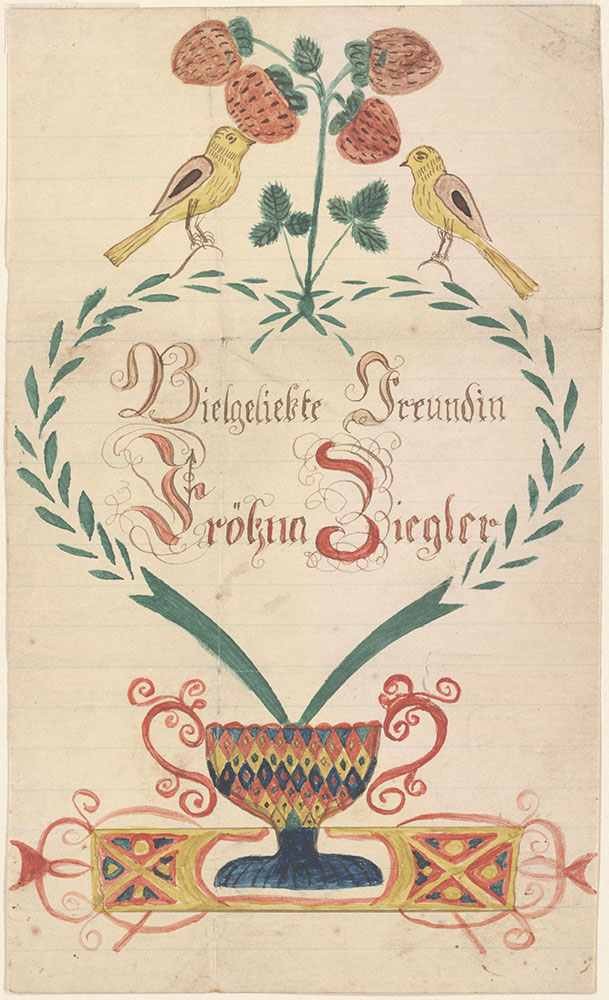 Vielgeliebte Freundin
Fröhna Ziegler